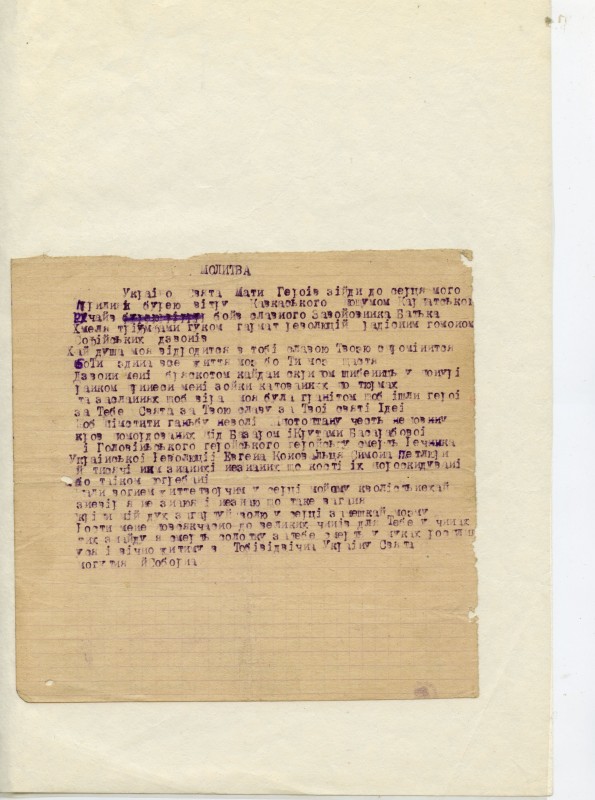 МОЛИТВА
Україно свята Мати Героїв зійди до серця мого
Прилинь бурею вітру Кавказького шумом Карпатської
Ручайв боїв славного Завойовника Батька
Хмеля тріумвами гуком гармат революцій радісним гомоном
Софійських дзвонів
Хай душа моя відродится в тобі славою Твоєю спроминится
боТи одина все життя моє бо Ти моє щастя
Дзвони мені брязкотом кайдан скрипом шибениць у понурі
ранком принеси мені зойки катованих по тюрмах
та засланнях щоб віра моя була гранітом щоб ішли герої
за Тебе Свята за Твою славу за Твої святі Ідеї
Щоб пімстити ганьбу неволі потоптану честь неповину
кров помордованих під Базаром іКрутами Басарабової
і Головінського геройського геройську смерть Ієчника
Української Революції Евгена Коновальця Симона Петлюри
й тисячі инших знаних незнаних що кості їх порозкидувані
або тайком погребані
вогнем життетворчим у серці мойому
я не знаю що таке вагання
мій дух загартуй волю у серці замешкай
Рости мене до великих чинів для Тебе у чинах
тих знайду я смерть солодку за тебе смерть у
уся і вічно житиму в Тобівідвічна Україну Свята
могутня йСоборна